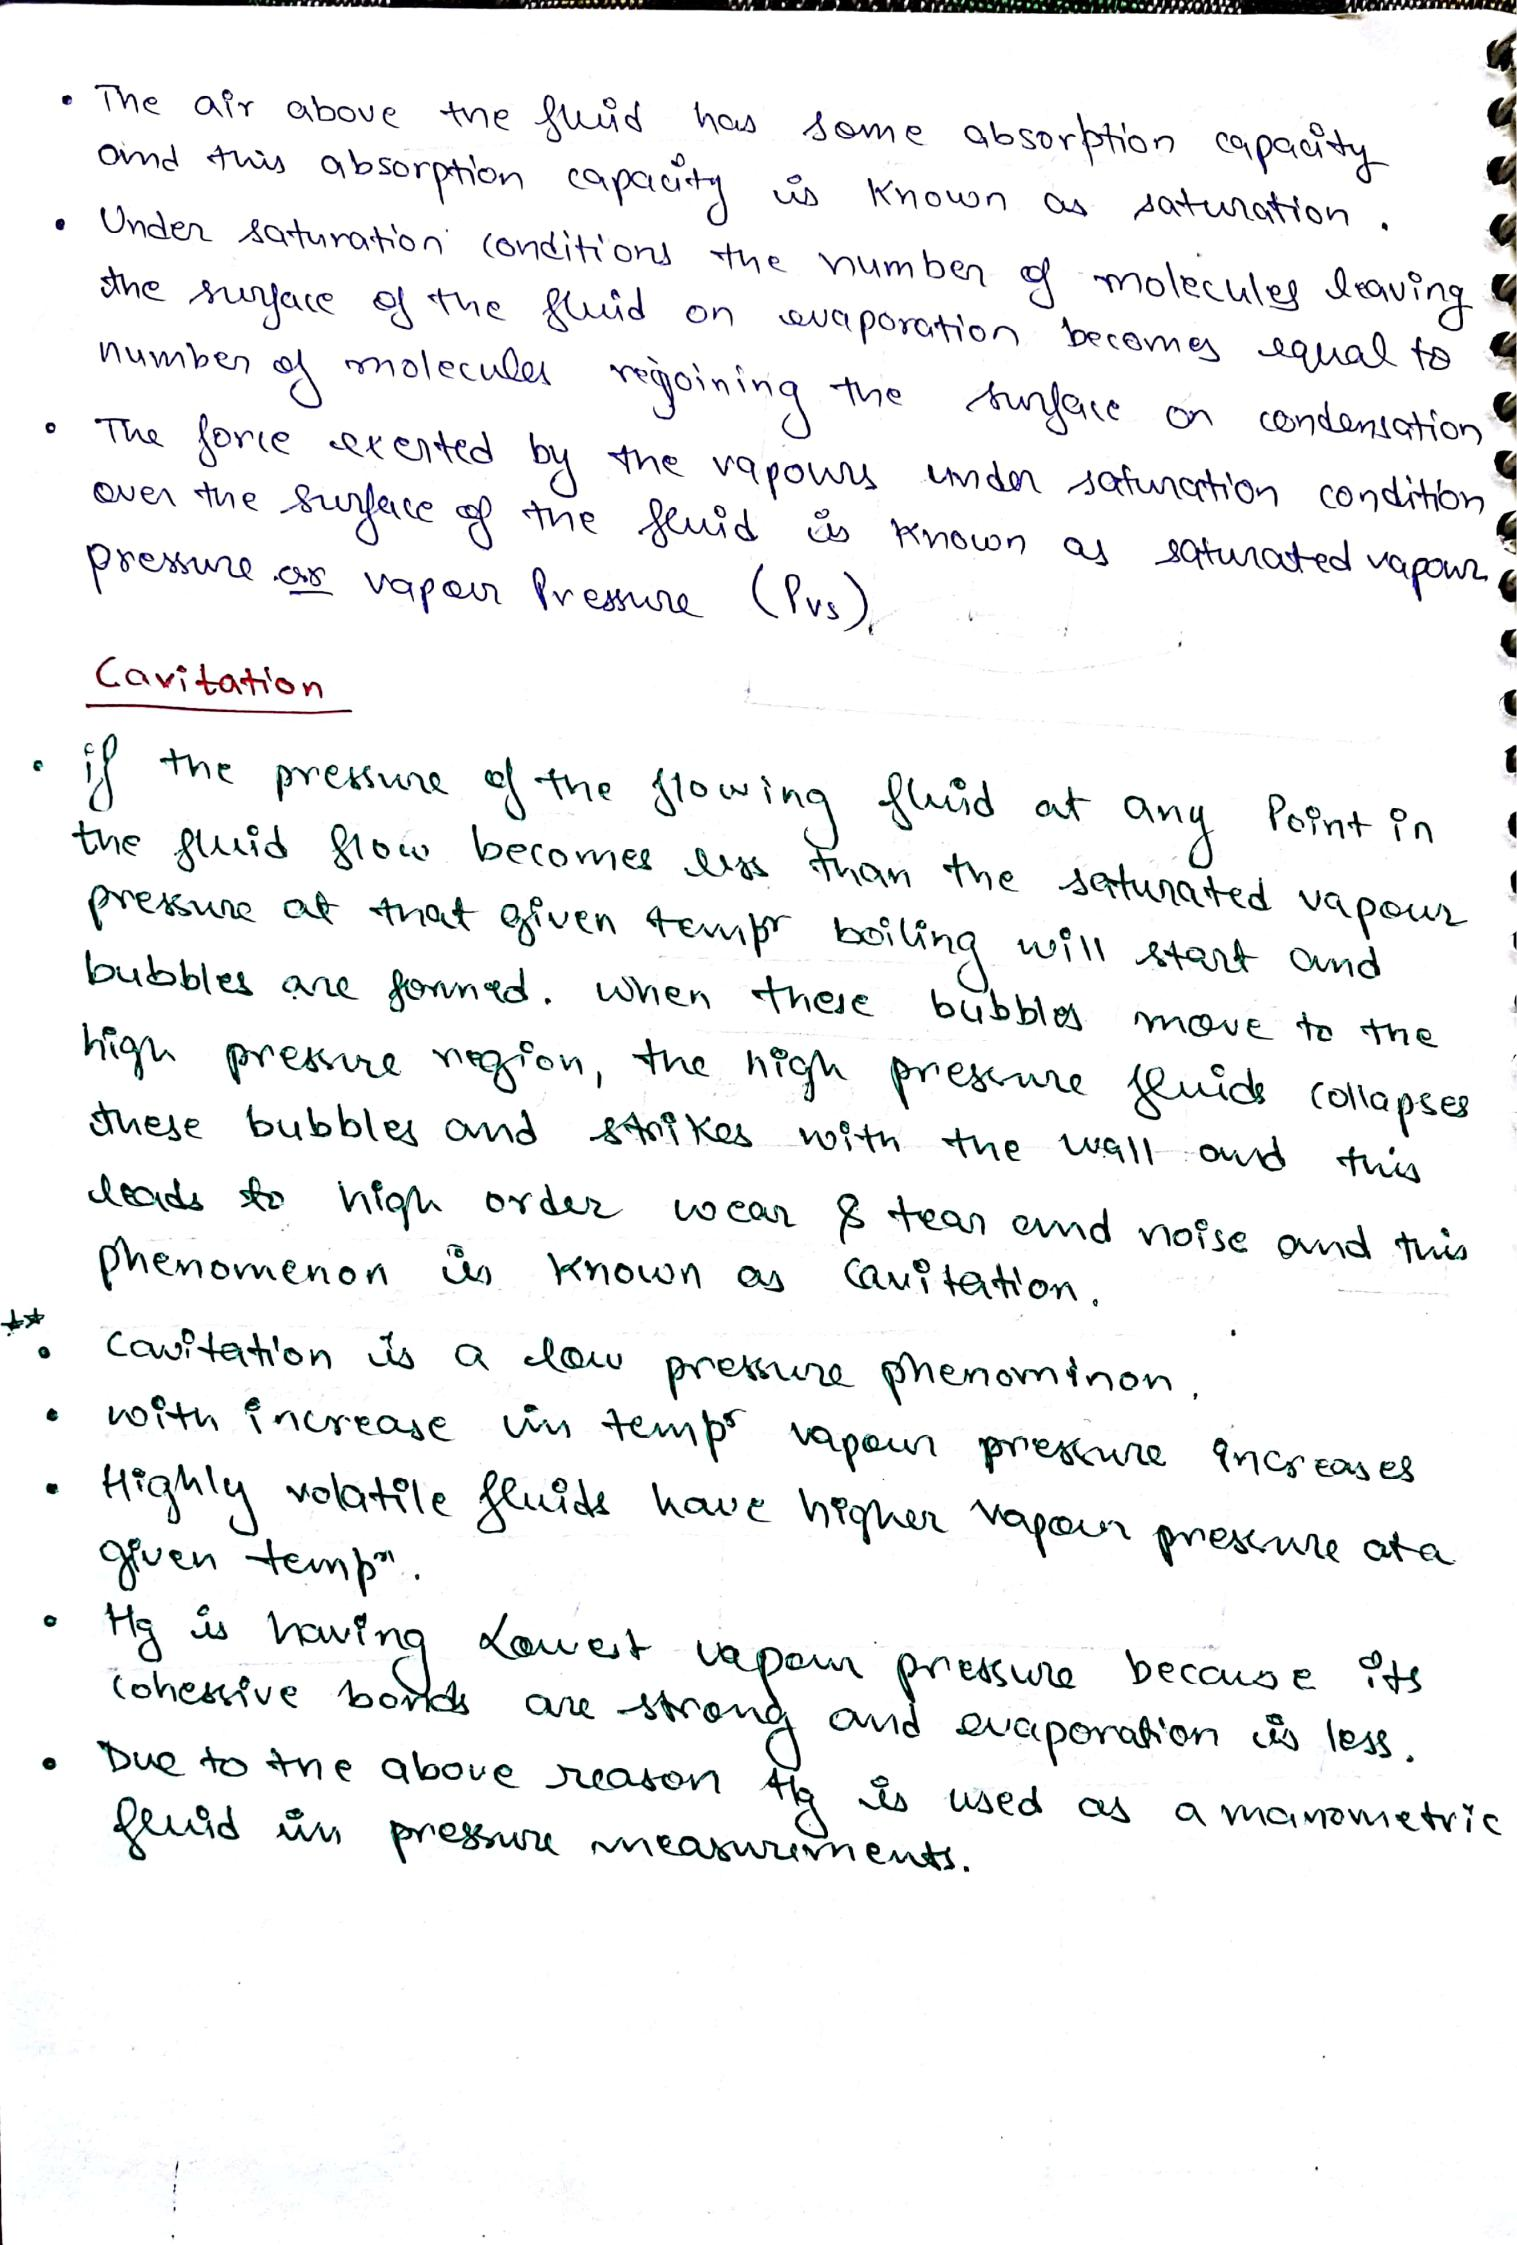 • The air above the fluid has some absorption capacity
and this absorption capacity is known as saturation.
• Under saturation conditions the number of molecules leaving
the surface of the fluid on evaporation becomes equal to
number of molecules rejoining the surface on condensation
• The force exerted by the vapours under saturation condition
over the surface of the fluid is known as saturated vapour
pressure or vapour Pressure (Pvs).
Cavitation
• if the pressure of the flowing fluid at any Point in
the fluid flow becomes less than the saturated vapour
pressure at that given tempr boiling will start and
bubbles are formed. When these bubbles move to the
high pressure region, the high pressure fluids collapses
these bubbles and strikes with the wall and this
leads to high order wear & tear and noise and this
phenomenon is known as Cavitation.
**
• Cavitation is a low pressure phenominon.
• with increase in tempr vapour pressure increases
• Highly volatile fluids have higher vapour pressure at a
given tempr.
• Hg is having Lowest vapour pressure because its
cohessive bonds are strong and evaporation is less.
• Due to the above reason Hg is used as a manometric
fluid in pressure measurements.